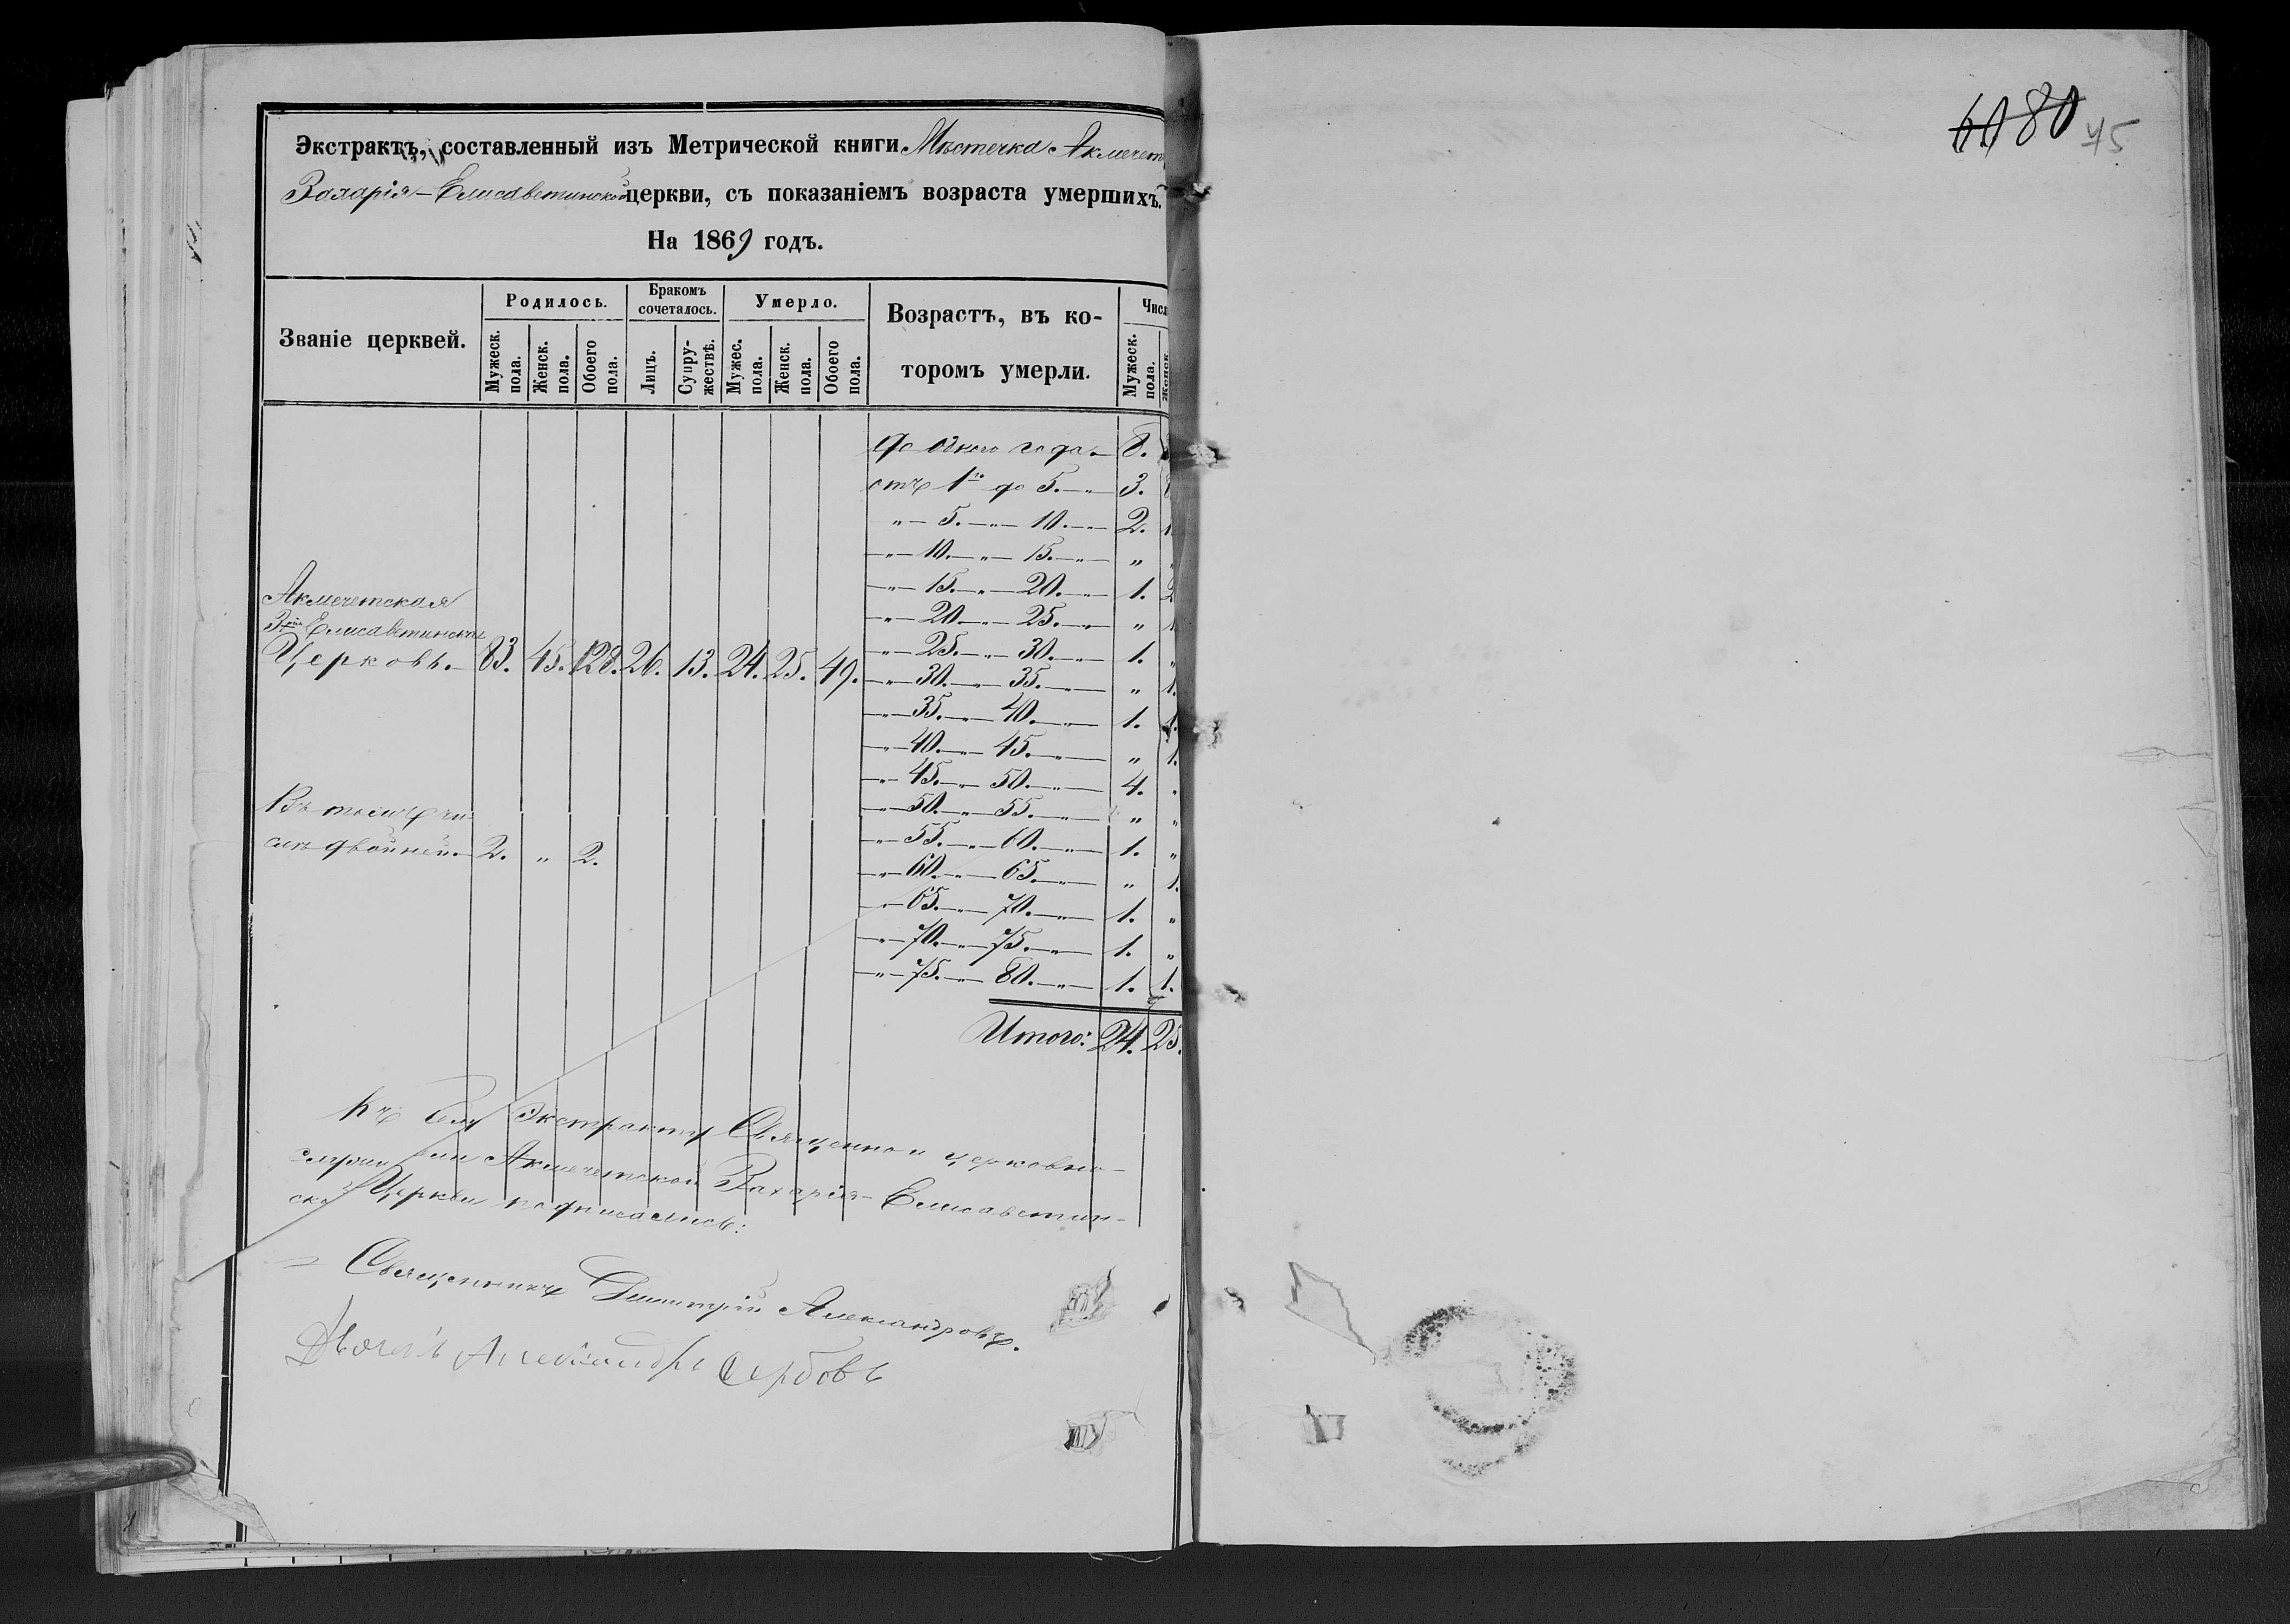 Экстрактъ, составленный изъ Метрической книги Мѣстечка Акмечет
Захарія-Елисаветинской церкви, съ показаніемъ возраста умершихъ.
На 1869 годъ.
Званіе церквей.
Родилось.
Мужеск. пола.
Женск. пола.
Обоего пола.
Бракомъ сочеталось.
Лицъ.
Супружествъ.
Умерло.
Мужес. пола.
Женск. пола.
Обоего пола.
Возрастъ, въ ко-
торомъ умерли.
Числ
Мужеск. пола.
Женск.
До одного года 8.
отъ 1го до 5. 3.
" 5. " 10. " 2. 1
" 10. " 15. " " "
" 15. " 20. " 1. 2
" 20. " 25. " " 1
" 25. " 30. " 1. "
" 30. " 35. " " 1.
" 35. " 40. " 1. 1.
" 40. " 45. " " 1.
" 45. " 50. " 4.
" 50. " 55. " " "
" 55. " 60. " 1. "
" 60. " 65. " " 1.
" 65. " 70. " 1. "
" 70. " 75. " 1. "
" 75. " 80. " 1. 1.
Итого: 24. 25.
Акмечетская
Зрія Елисаветинская
Церковь. 83. 45. 128. 26. 13. 24. 25. 49.
Въ томъ чи-
слѣ двойней. 2. " 2.
Къ сему Экстракту Священно и церковно-
служители Акмечетской Захарія-Елисаветин-
ской Церкви подписались:
Священникъ Димитрій Александровъ.
Дьячекъ Александръ Сербовъ
80
45